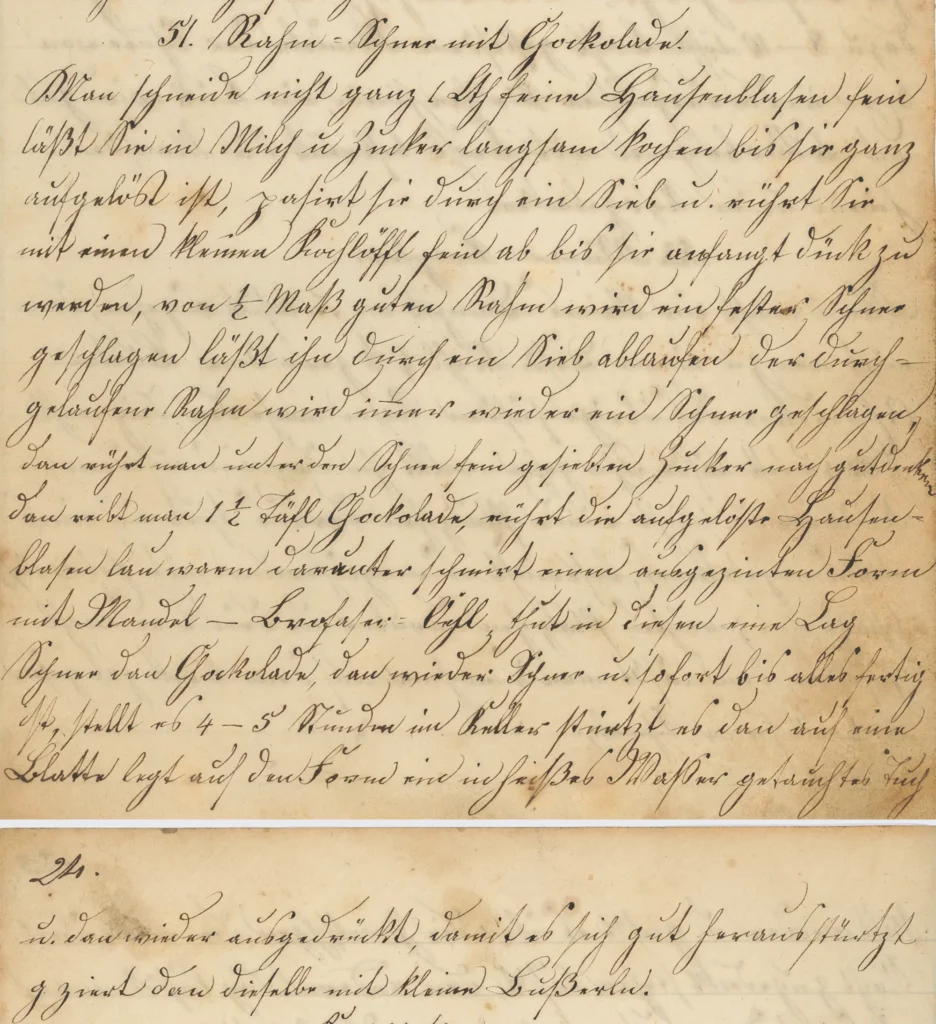 51. Rahm-Schnee mit Chockolade.
Man schneide nicht ganz 1 Lth feine Hausenblasen fein
läßt Sie in Milch u Zucker langsam kochen bis sie ganz
aufgelöst ist, pasirt sie durch ein Sieb u. rührt Sie
mit einen kleinen Kochlöffl fein ab bis sie anfangt dück zu
werden, von ½ Maß guten Rahm wird ein fester Schnee
geschlagen läßt ihn durch ein Sieb ablaufen der durch-
gelaufene Rahm wird immer wieder ein Schnee geschlagen,
dan rührt man unter den Schnee fein gesiebten Zucker nach gutdenken
dan reibt man 1 ½ Täfl Chockolade, rührt die aufgelöste Hausen-
blasen lau warm darunter schmirt einen ausgezinten Form
mit Mandel – Oehl, thut in diesen eine Lag
Schnee dan Chockolade, dan wieder Schnee u. sofort bis alles fertig
ist, stellt es 4 – 5 Stunden im Keller stürtzt es dan auf eine
Blatte legt auf den Form ein in heißes Wasser getauchtes Tuch
24.
u. dan wieder ausgedrückt, damit es sich gut herausstürtzt
g ziert dan dieselbe mit kleine Bußerln.